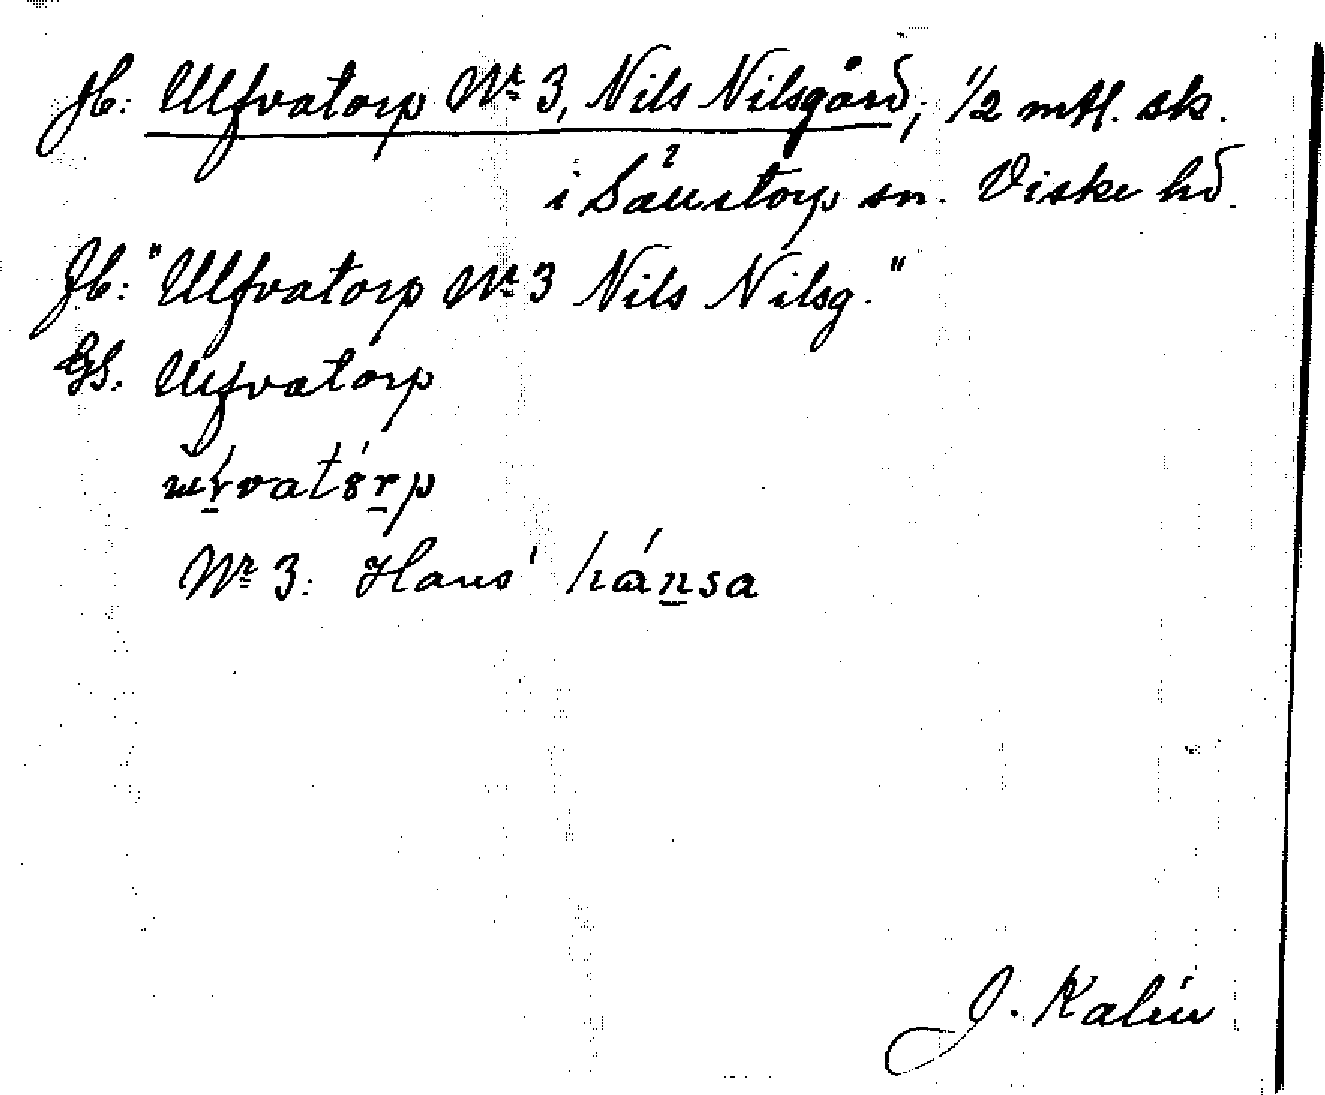 Jb: Ulfvatorp Nr 3, Nils Nilsgård, 1/2 mtl. sk.
i Säustorp sn. Viske hd.
Jb: "Ulfvatorp Nr 3 Nils Nilsg."
GS. Ulfvatorp
Nr 3: Hans' hánsa
J. Kalén